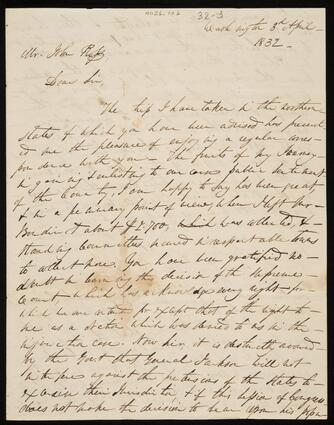 4026.106
32-3
Washington 3d April
1832
Mr. John Ridge
Dear Sir,
The trip I have taken in the northern
States of which you have been advised has prevent
ed me the pleasure of enjoying a regular corres
pondence with you. The fruits of my Journey
in gaining to our cause public sentiment
of the Country, I am happy to say has been great
& in a pecuniary point of view, when I left
Boudinot about $1,700, which was collected &
standing Committees in respectable towns
to collect more. You have been gratified no
doubt to learn the decision of the Supreme
Court which has acknowledge every right for
which we are except that of the right to
sue as a which was denied to us in the
injunction case. Now Sir, it is distinctly
by the Govt that General Jackson will not
interfere against the of the States to
exercise their Jurisdiction & if this of Congress
does not make the decision to bear upon his